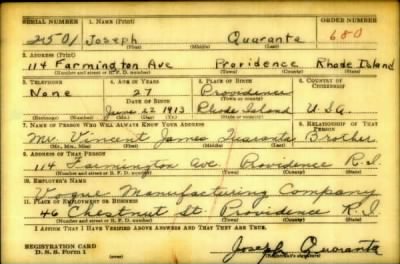 SERIAL NUMBER 1. NAME (Print) ORDER NUMBER
2501 Joseph Quaranta 680
(First) (Middle) (Last)
2. ADDRESS (Print)
114 Farmington Ave Providence Rhode Island
(Number and street or R. F. D. number) (Town) (County) (State)
3. TELEPHONE 4. AGE IN YEARS 5. PLACE OF BIRTH 6. COUNTRY OF CITIZENSHIP
None 27 Providence
DATE OF BIRTH (Town or county)
June 22 1913 Rhode Island U.S.A.
(Exchange) (Number) (Mo.) (Day) (Yr.) (State or country)
7. NAME OF PERSON WHO WILL ALWAYS KNOW YOUR ADDRESS 8. RELATIONSHIP OF THAT PERSON
Mr. Vincent James Quaranta Brother
(Mr., Mrs., Miss) (First) (Middle) (Last)
9. ADDRESS OF THAT PERSON
114 Farmington Ave. Providence R.I.
(Number and street or R. F. D. number) (Town) (County) (State)
10. EMPLOYER'S NAME
Vogue Manufacturing Company
11. PLACE OF EMPLOYMENT OR BUSINESS
46 Chestnut St. Providence R.I.
(Number and street or R. F. D. number) (Town) (County) (State)
I AFFIRM THAT I HAVE VERIFIED ABOVE ANSWERS AND THAT THEY ARE TRUE.
REGISTRATION CARD
D. S. S. Form 1 Joseph Quaranta
(Registrant's signature)